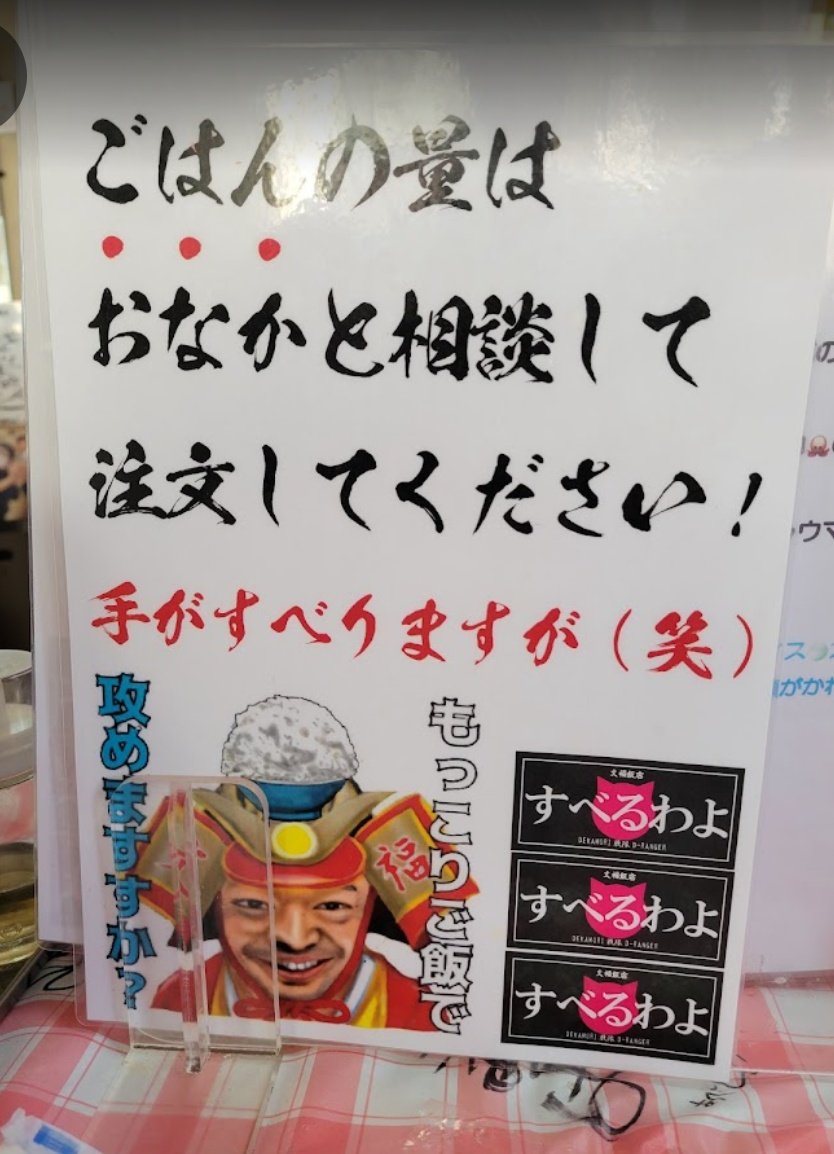 ごはんの量は
おなかと相談して
注文してください！
手がすべりますが（笑）
もっこりご飯で
攻めますか？
福
文福飯店
すべるわよ
DEKAMORI 戦隊 D-RANGER
文福飯店
すべるわよ
DEKAMORI 戦隊 D-RANGER
文福飯店
すべるわよ
DEKAMORI 戦隊 D-RANGER
がかれ